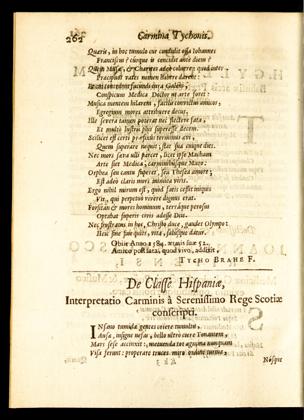 262 Carmina Tychonis.
Quæris, in hoc tumulo cur condidit ossa Iohannes
Franciscus? cúrque is concidit ante diem?
Quem Musæ, & Charites adeò coluere; quod inter
Præcipuos vates nomen habere daret:
Conspicuus Medica Doctor ut arte foret:
Musica mentem hilarem, facilis convictus amicos,
Egregium mores attribuere decus,
Ille severa tamen poterat nec flectere fata,
Et multò lustris plus superesse decem.
Scilicet est certi præfixus terminus ævi,
Quem superare nequit, stat sua cuique dies.
Nec mors sæva ulli parcet, licet ipse Machaon
Arte siet Medica, carminibusque Maro:
Orphea seu cantu superet, seu Thesea amore;
Est adeò claris mors inimica viris.
Ergo nihil mirum est, quod fatis cessit iniquis
Vir, qui perpetuò vivere dignus erat.
Forsitan & mores hominum, terrásque perosus
Optabat superis civis adesse Deis.
Nec frustratus in hoc, Christo duce, gaudet Olympo:
Heu sine fine quies, vita, salusque datur.
Obiit Anno 1584. ætatis suæ 52.
Amico post fata, quod vivo, addixit
TYCHO BRAHE F.
De Classe Hispaniæ,
Interpretatio Carminis à Serenissimo Rege Scotiæ
conscripti.
INsano tumidæ gentes coiere tumultu,
Ausæ, insigne nefas, bello ultro ciere Tonantem,
Mars sese accinxit: metuenda tot agmina nunquam
Visa ferunt: properare truces miro ordine turmæ,
Nosque